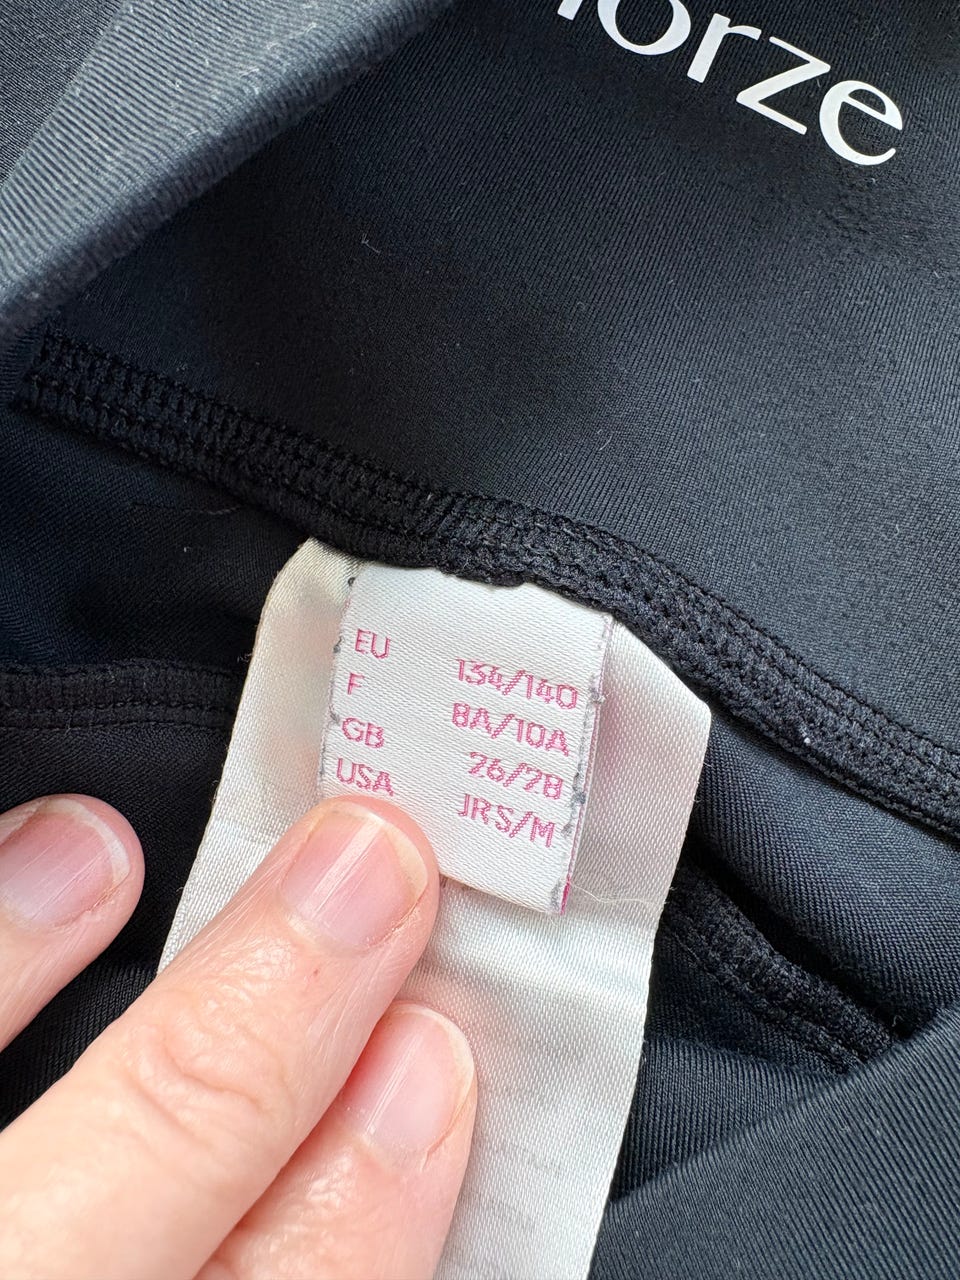 horze
EU 134/140
F 8A/10A
GB 26/28
USA JRS/M